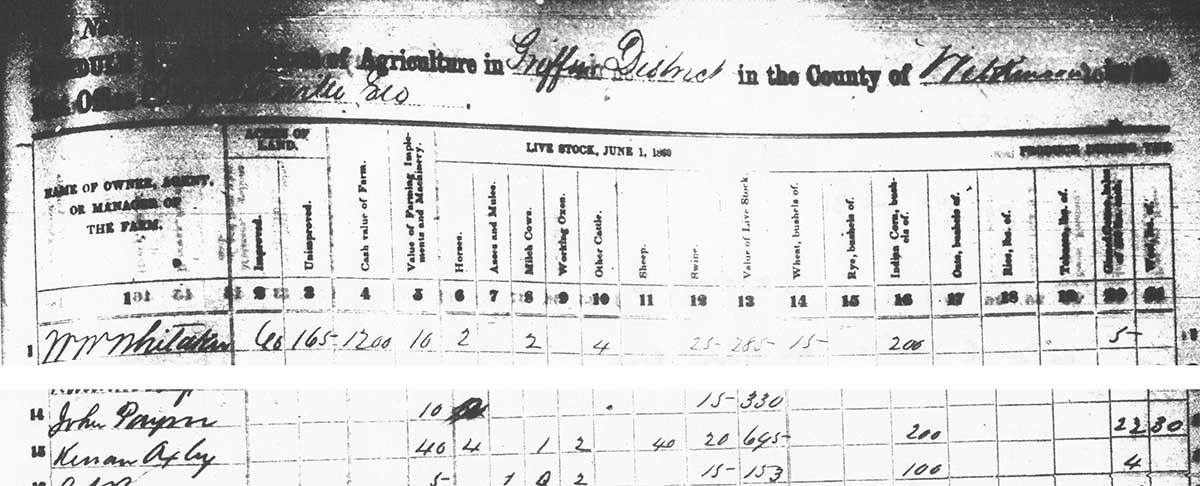 of Agriculture in Griffin District in the County of
Geo
ACRES OF LAND.
LIVE STOCK, JUNE 1, 1860
PRODUCE DURING THE
NAME OF OWNER, AGENT, OR MANAGER OF THE FARM.
Improved.
Unimproved.
Cash value of Farm.
Value of Farming Implements and Machinery.
Horses.
Asses and Mules.
Milch Cows.
Working Oxen.
Other Cattle.
Sheep.
Swine.
Value of Live Stock.
Wheat, bushels of.
Rye, bushels of.
Indian Corn, bushels of.
Oats, bushels of.
Rice, lbs. of.
Tobacco, lbs. of.
Wool, lbs. of.
1 2 3 4 5 6 7 8 9 10 11 12 13 14 15 16 17 18 19 20 21
1 W W Whitaker 60 165 1200 10 2 2 4 25 285 15 200 5
14 John Payne 10 15 330
15 40 4 1 2 40 20 695 200 22 30
5 1 2 15 153 100 4